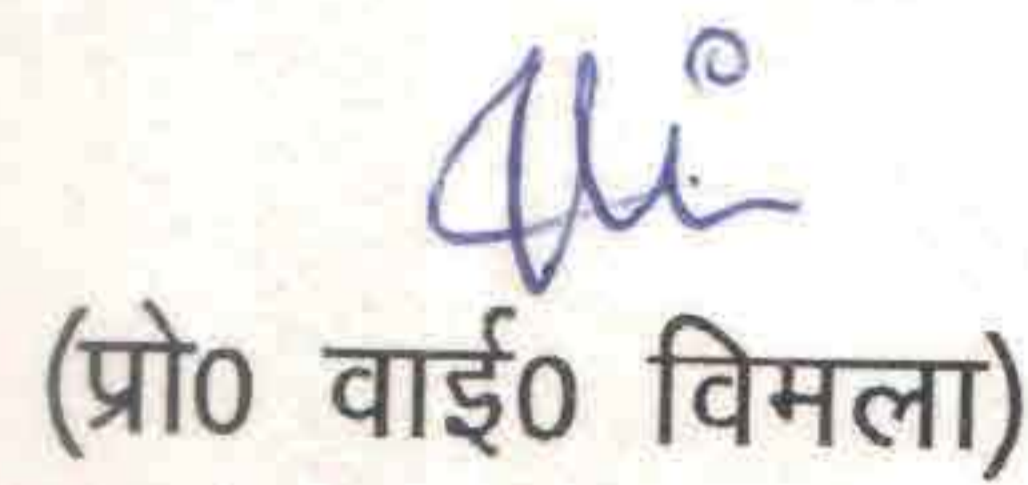 (प्रो0 वाई0 विमला)